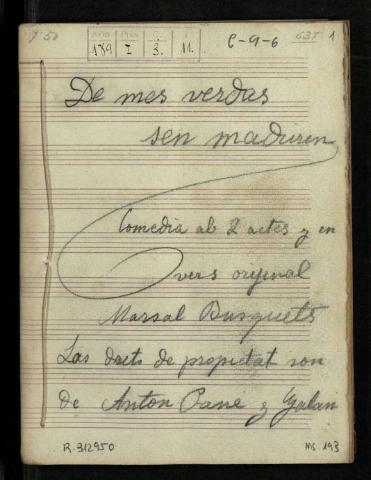 1
C-9-6
I 3. 11.
De mes verdas
sen maduren
Comedia ab 2 actes y en
vers original
Marsal Busquets
Las drets de propietat son
de Anton Pané y Galan
R.312950
Ms 193